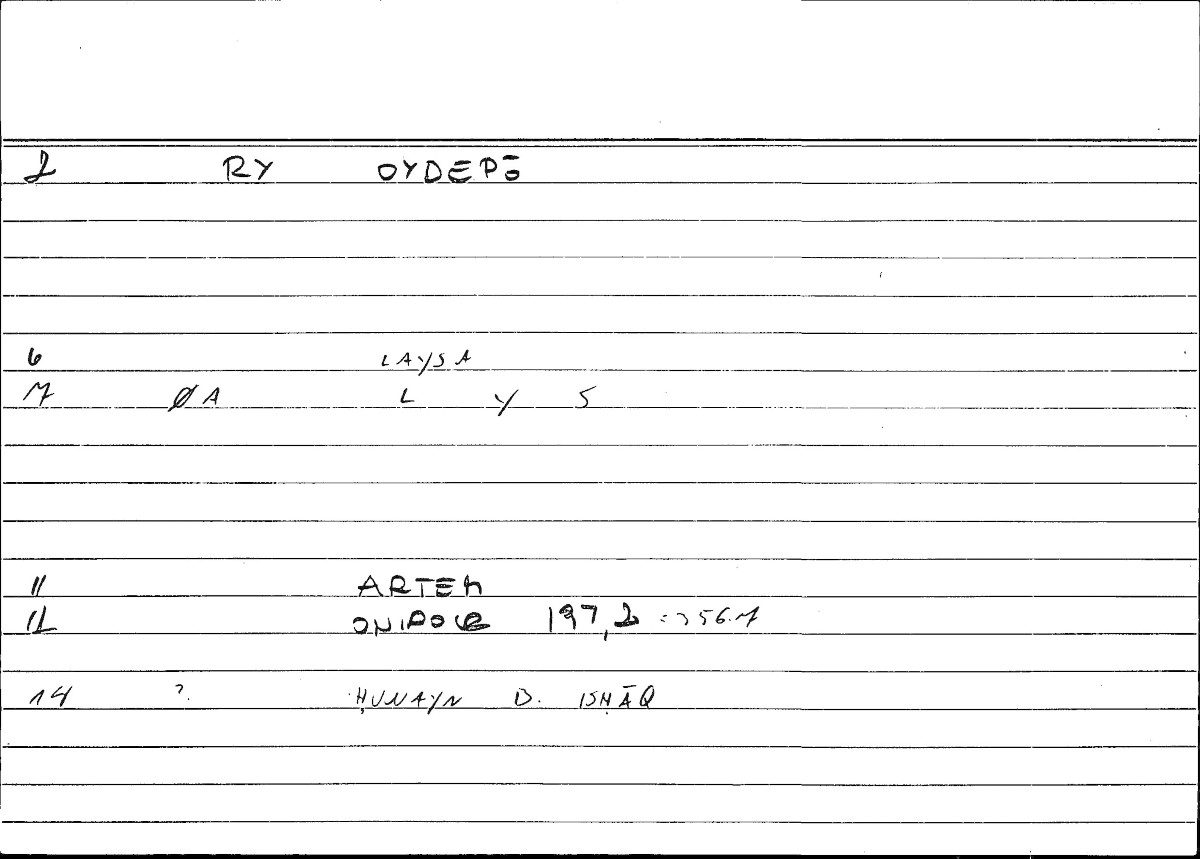 2 RY OYDEPŌ
6 LAYSA
7 ØA L Y S
11 ARTEM
12 ONIPOC 197,2
14 ? ḤUNAYN B. ISḤĀQ